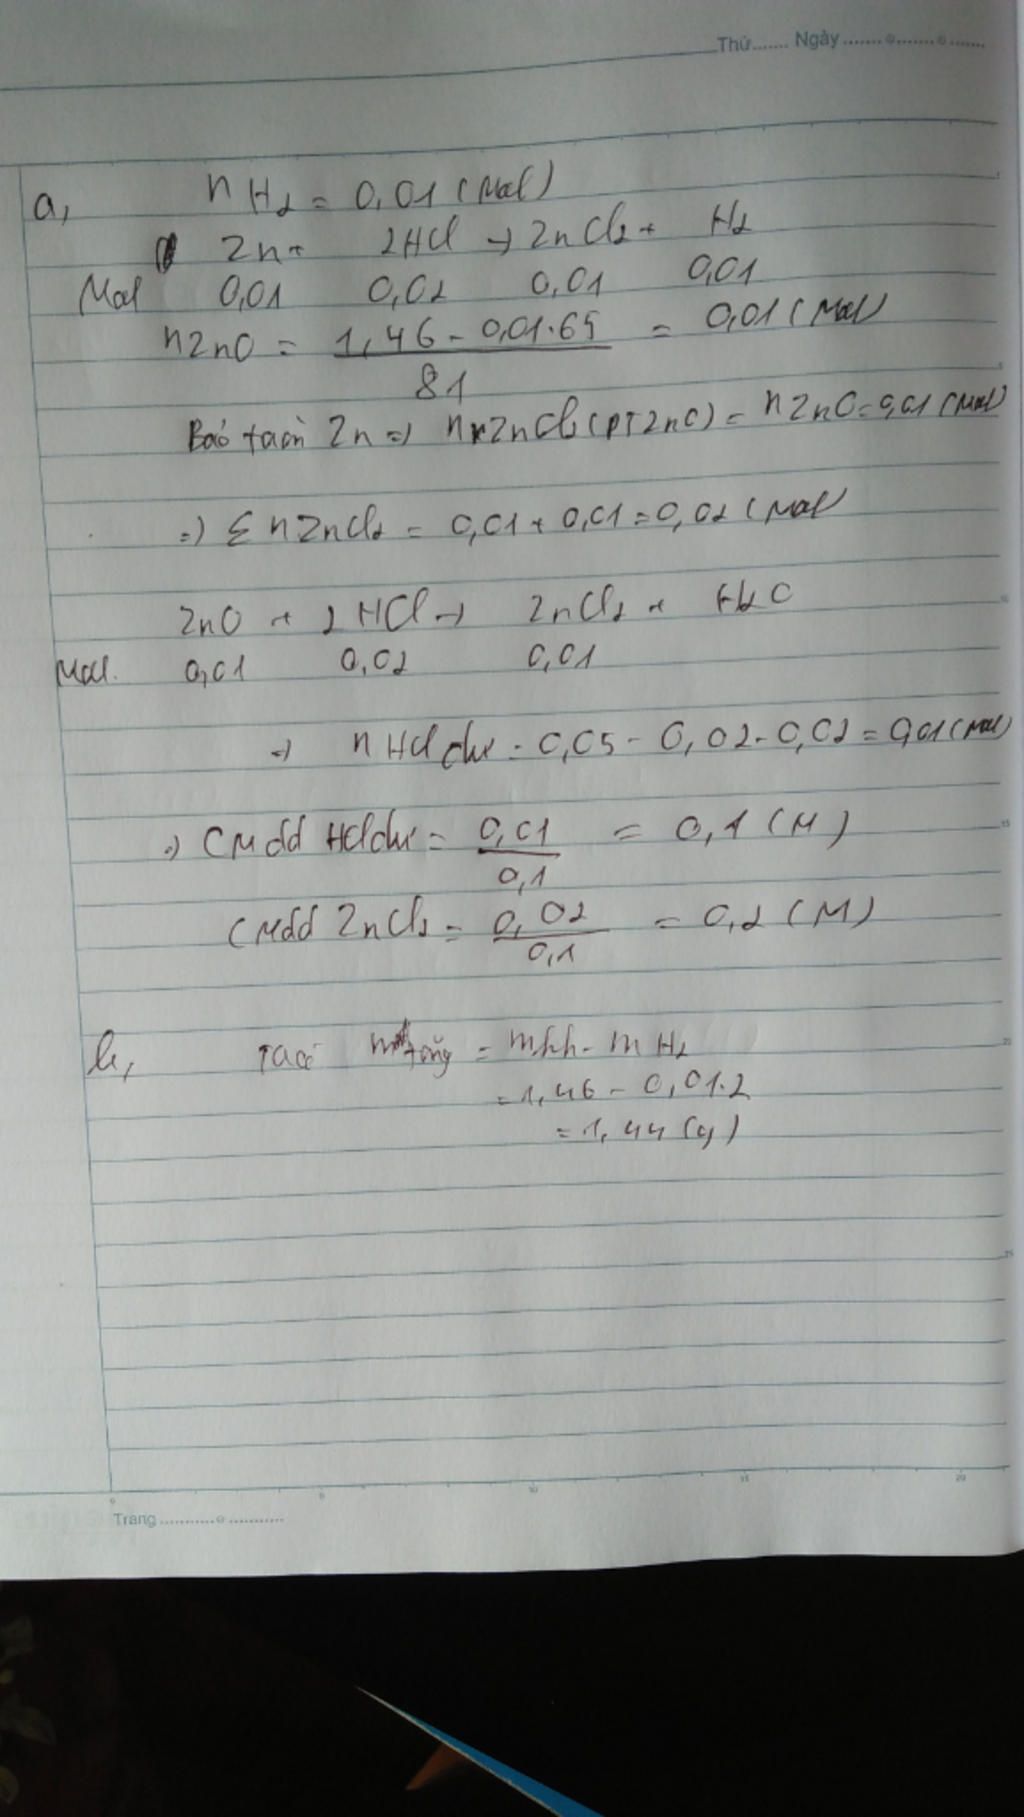 Thứ....... Ngày
a, nH₂ = 0,01 (Mol)
Zn + 2HCl → ZnCl₂ + H₂
Mol 0,01 0,02 0,01 0,01
nZnO = (1,46 - 0,01.65)/81 = 0,01 (Mol)
Bảo toàn Zn => nZnCl₂ (PTZnO) = nZnO = 0,01 (Mol)
=> Σ nZnCl₂ = 0,01 + 0,01 = 0,02 (Mol
ZnO + 2HCl → ZnCl₂ + H₂O
Mol. 0,01 0,02 0,01
=> nHCl dư = 0,05 - 0,02 - 0,02 = 0,01 (Mol)
=> CM dd HCl dư = 0,01/0,1 = 0,1 (M)
CM dd ZnCl₂ = 0,02/0,1 = 0,2 (M)
b, Ta có m tăng = mhh - mH₂
= 1,46 - 0,01.2
= 1,44 (g)
0 5 10 15 20
Trang